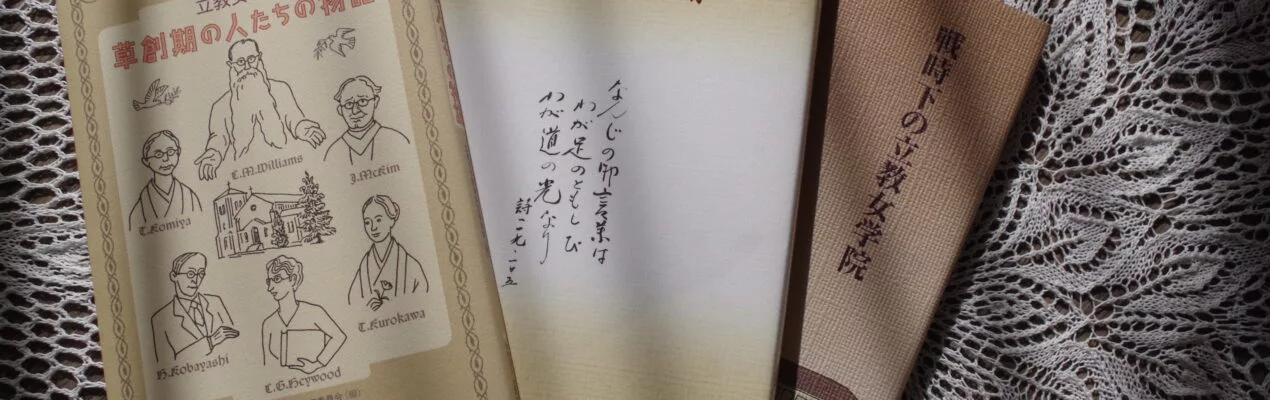 立教女
草創期の人たちの物語
C.M.Williams
J.McKim
T.Komiya
T.Kurokawa
H.Kobayashi
C.G.Heywood
なんじの御言葉は
わが足のともしび
わが道の光なり
詩一一九・一〇五
戦時下の立教女学院